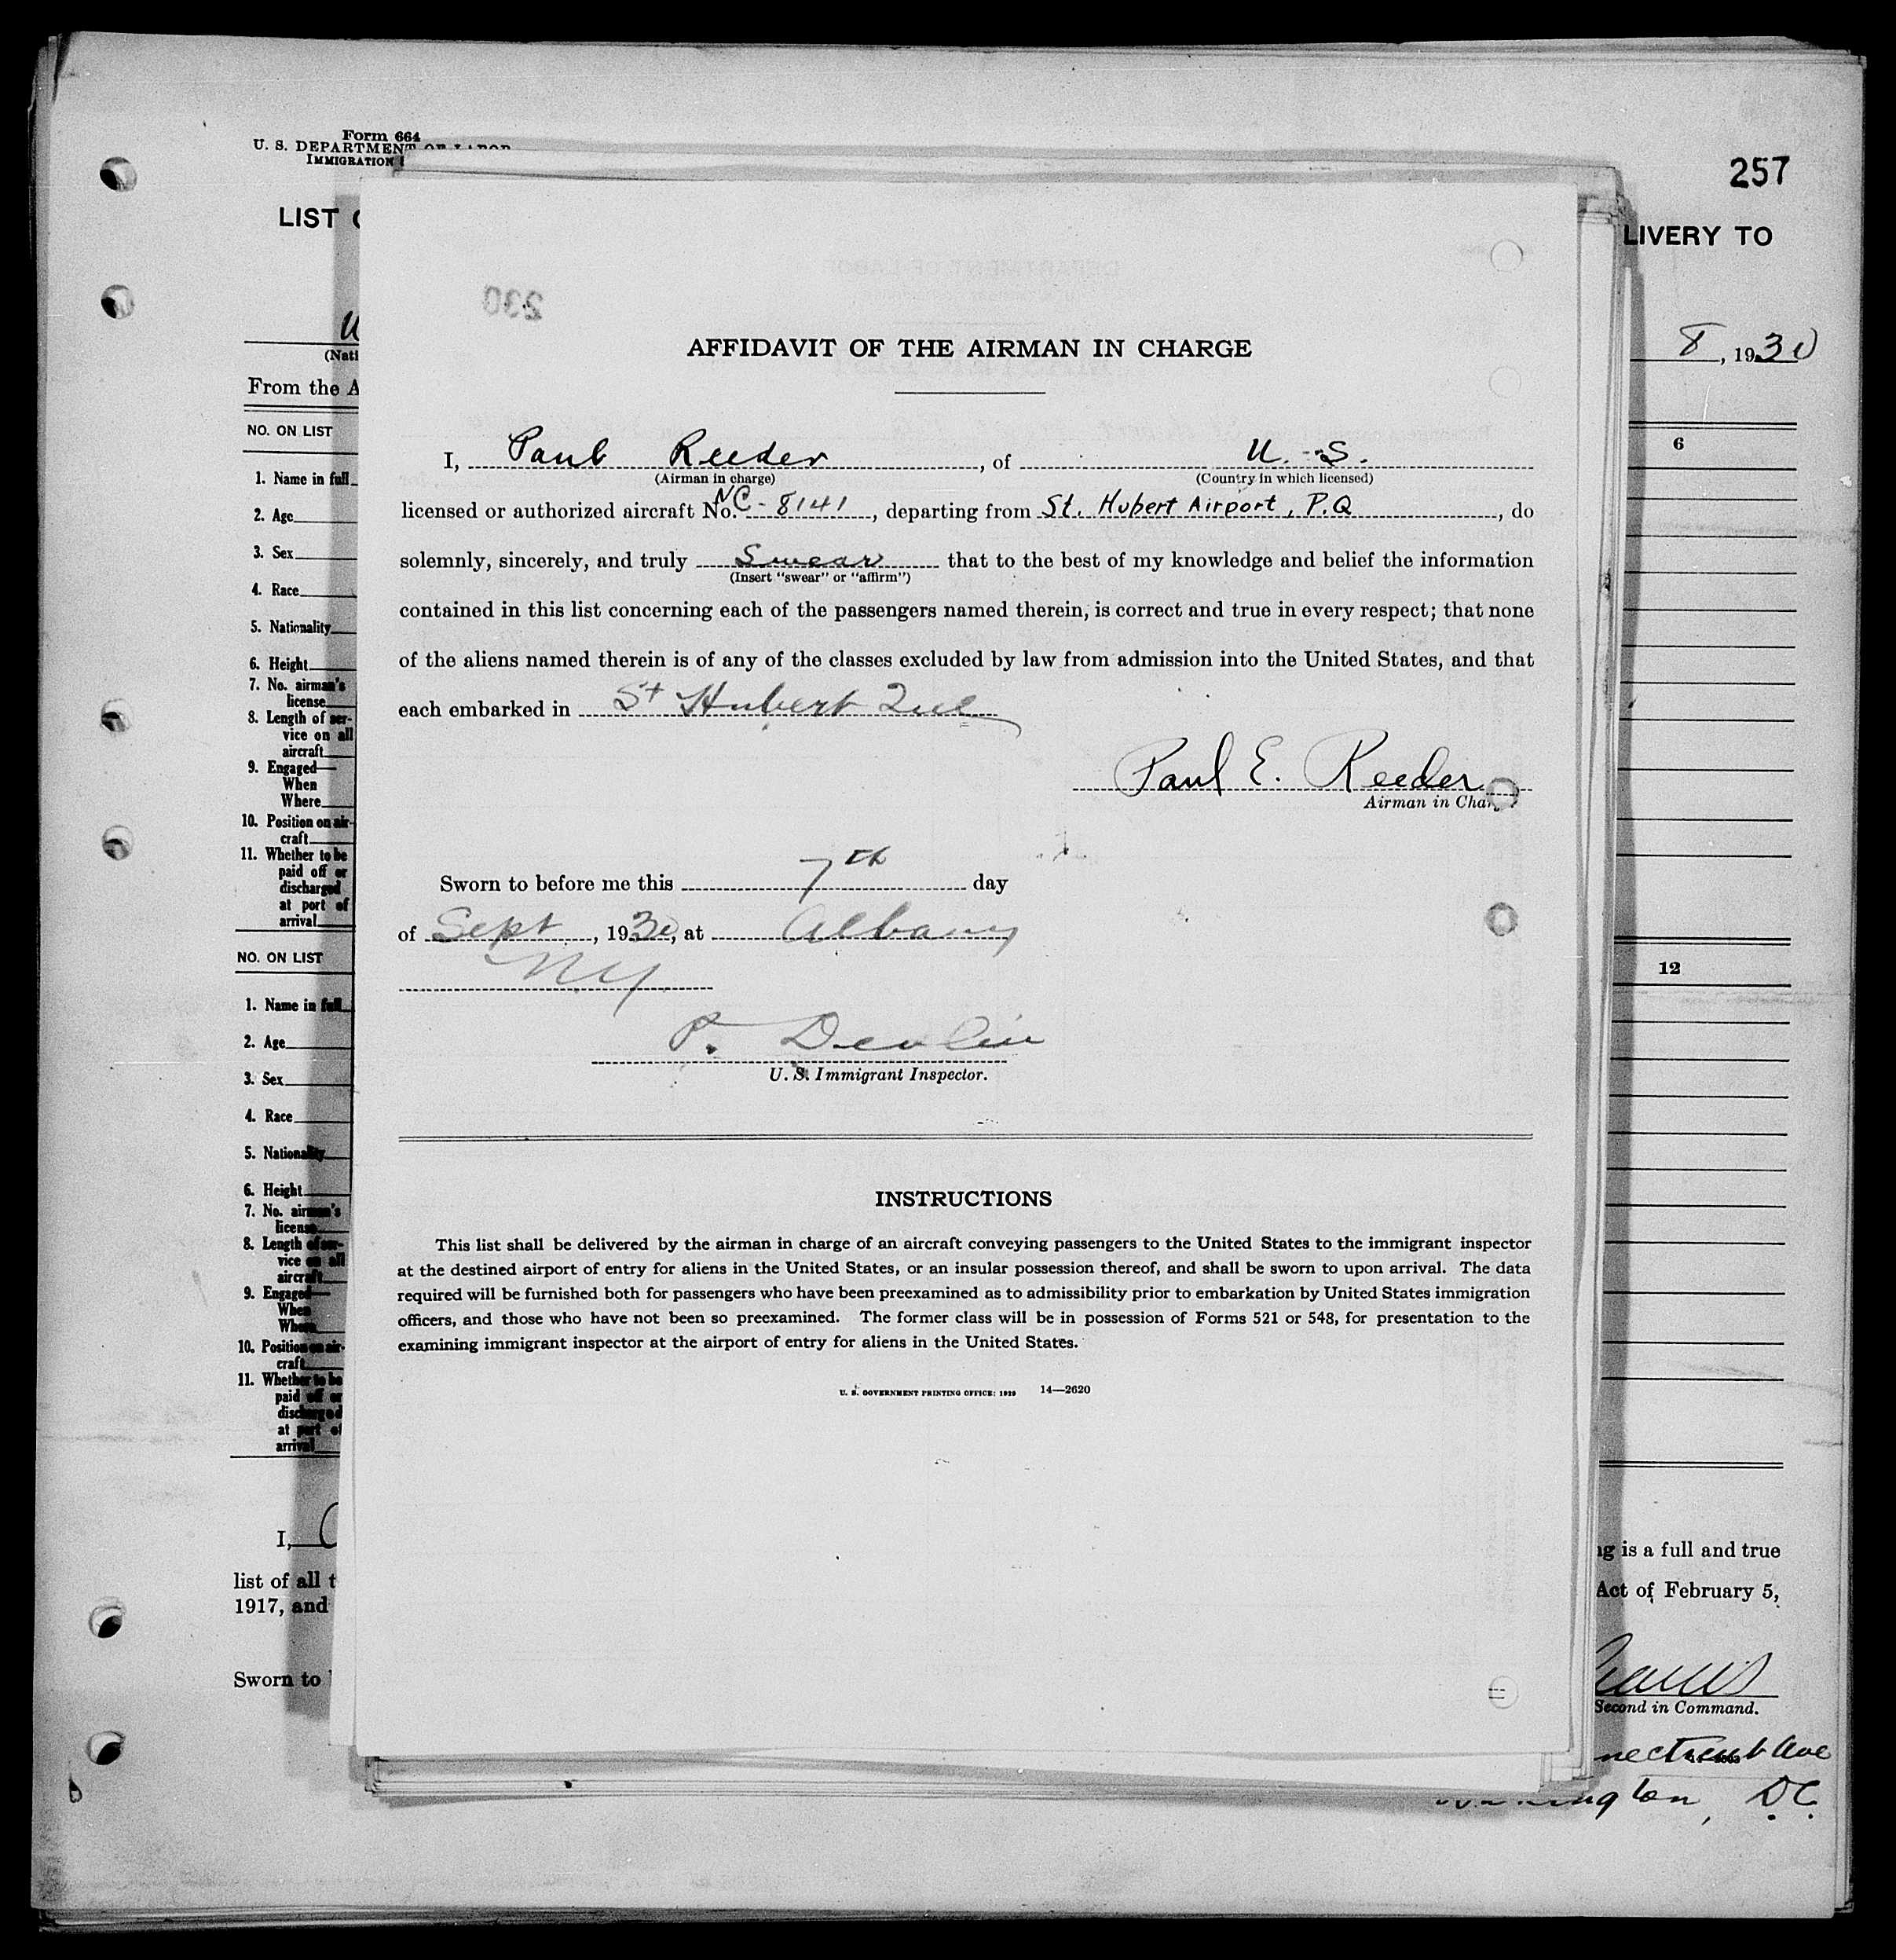 Form 664
U. S. DEPARTMENT OF LABOR
IMMIGRATION
257
LIST
LIVERY TO
230
8, 1930
(Nati
From the A
NO. ON LIST
6
1. Name in full
2. Age
3. Sex
4. Race
5. Nationality
6. Height
7. No. airman's
license
8. Length of ser-
vice on all
aircraft
9. Engaged—
When
Where
10. Position on air-
craft
11. Whether to be
paid off or
discharged
at port of
arrival
NO. ON LIST
12
1. Name in full
2. Age
3. Sex
4. Race
5. Nationality
6. Height
7. No. airman's
license
8. Length of ser-
vice on all
aircraft
9. Engaged—
When
Where
10. Position on air-
craft
11. Whether to be
paid off or
discharged
at port of
arrival
I,
list of all t
1917, and
Sworn to
AFFIDAVIT OF THE AIRMAN IN CHARGE
I, Paul Reeder, of U. S.
(Airman in charge) (Country in which licensed)
licensed or authorized aircraft No. NC-8141, departing from St. Hubert Airport, P.Q, do
solemnly, sincerely, and truly swear that to the best of my knowledge and belief the information
(Insert "swear" or "affirm")
contained in this list concerning each of the passengers named therein, is correct and true in every respect; that none
of the aliens named therein is of any of the classes excluded by law from admission into the United States, and that
each embarked in St Hubert Que
Paul E. Reeder
Airman in Charge
Sworn to before me this 7th day
of Sept, 1930, at Albany
NY
P. Devlin
U. S. Immigrant Inspector.
INSTRUCTIONS
This list shall be delivered by the airman in charge of an aircraft conveying passengers to the United States to the immigrant inspector
at the destined airport of entry for aliens in the United States, or an insular possession thereof, and shall be sworn to upon arrival. The data
required will be furnished both for passengers who have been preexamined as to admissibility prior to embarkation by United States immigration
officers, and those who have not been so preexamined. The former class will be in possession of Forms 521 or 548, for presentation to the
examining immigrant inspector at the airport of entry for aliens in the United States.
U. S. GOVERNMENT PRINTING OFFICE: 1929 14—2620
ng is a full and true
Act of February 5,
Second in Command.
necticut Ave
ington, D.C.